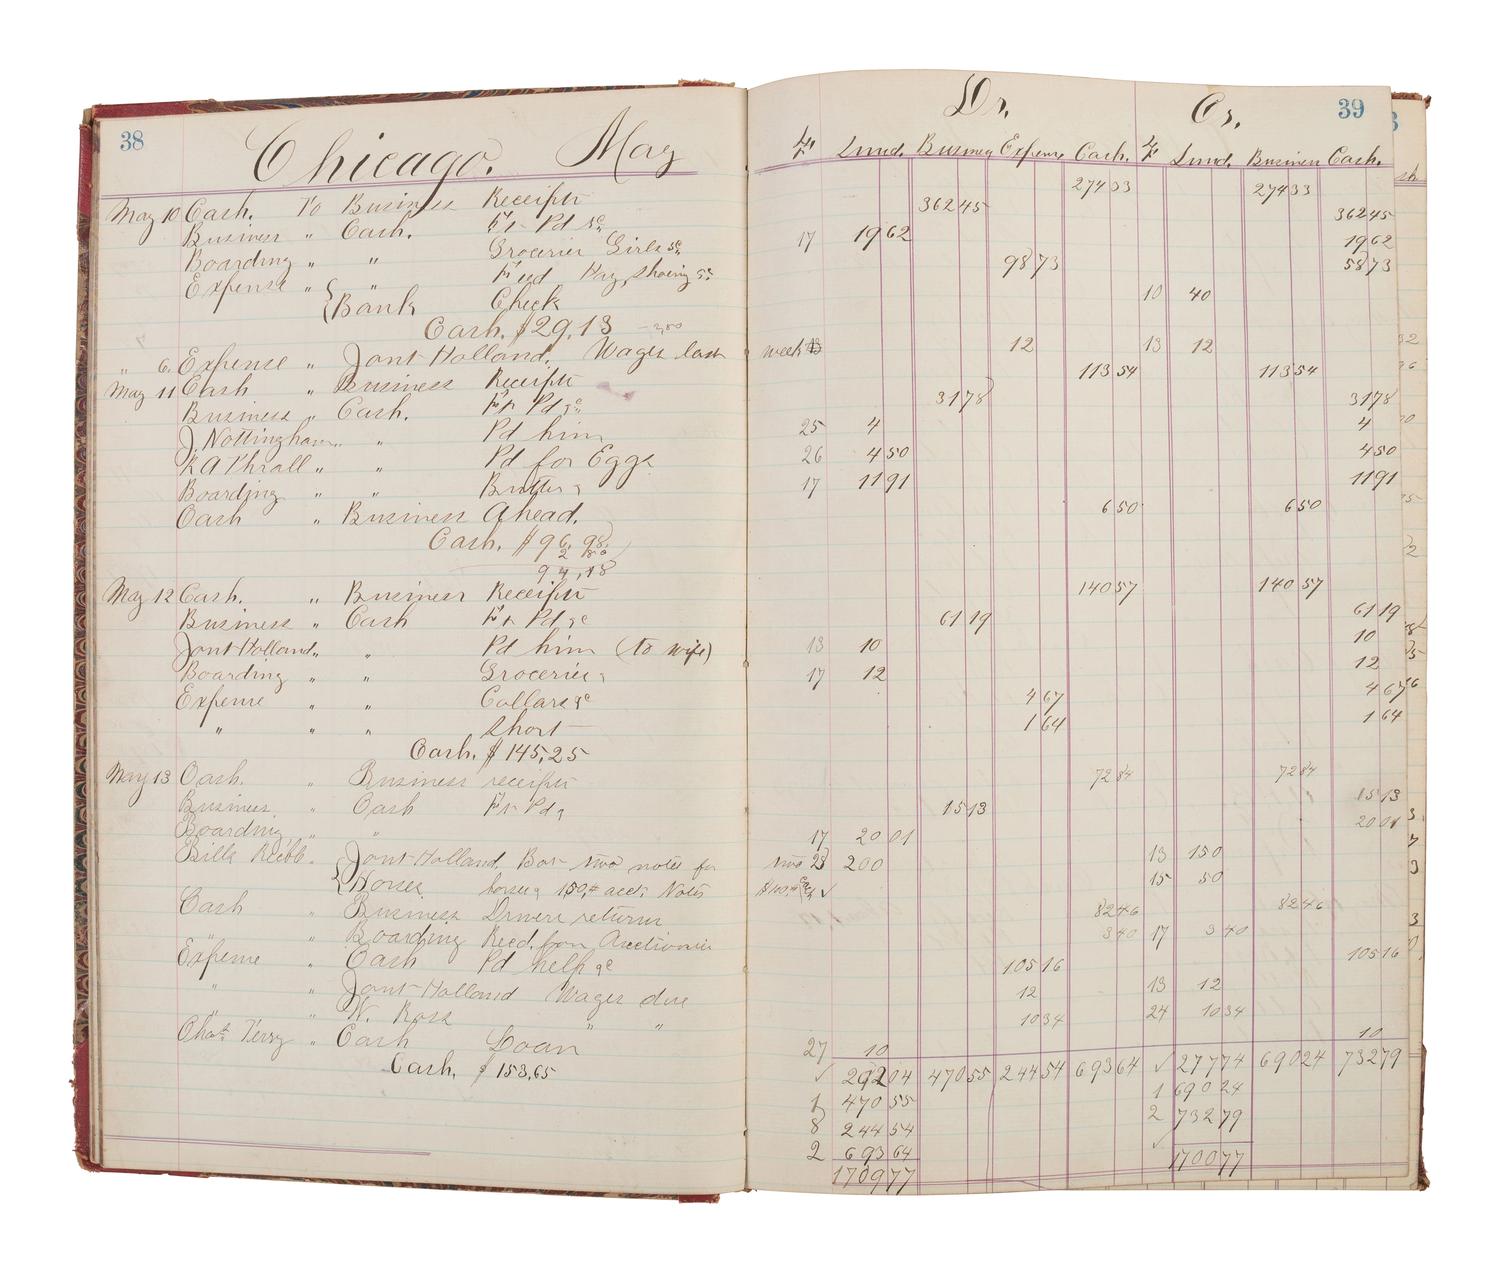 38
Chicago. May
May 10 Cash. To Business Receipts
Business " Cash. Frt Pd &c
Boarding " " Groceries Girls &c
Expense " " Feed Hay, Shoeing &c
Bank Check
Cash. $29.13
" 6. Expense " Jont Holland. Wages last week
May 11 Cash " Business Receipts
Business " Cash. Frt Pd &c
J Nottingham " " Pd him
R A Thrall " " Pd for Eggs
Boarding " " Butter
Cash " Business Ahead.
Cash. $96.98
2 80
94,18
May 12 Cash. " Business Receipts
Business " Cash Frt Pd &c
Jont Holland " " Pd him (to wife)
Boarding " " Groceries
Expense " " Collars &c
" " " Short
Cash. $145,25
May 13 Cash. " Business receipts
Business. " Cash Frt Pd
Boarding " "
Bills Recbl. " Jont Holland. Bot two notes for two
Horses horses 150.# acct. Notes
Cash " Business Drivers returns
" " Boarding Recd. from Auctioneer
Expense " Cash Pd help &c
" " Jont Holland Wages due
" N. Ross " "
Chas. Terry " Cash Loan
Cash. $153,65
39
Dr. Cr.
Lund. Business Expense Cash. Lund. Business Cash.
274 33 274 33
362 45 362 45
17 19 62 19 62
98 73 58 73
10 40
12 13 12
113 54 113 54
31 78 31 78
25 4 4
26 4 50 4 50
17 11 91 11 91
6 50 6 50
140 57 140 57
61 19 61 19
13 10 10
17 12 12
4 67 4 67
1 64 1 64
72 84 72 84
15 13 15 13
17 20 01 20 01
23 200 13 150
15 50
82 46 82 46
3 40 17 3 40
105 16 105 16
12 13 12
10 34 24 10 34
27 10 10
292 04 470 55 244 54 693 64 277 74 690 24 732 79
1 470 55 1 690 24
8 244 54 2 732 79
2 693 64
1709 77 1700 77